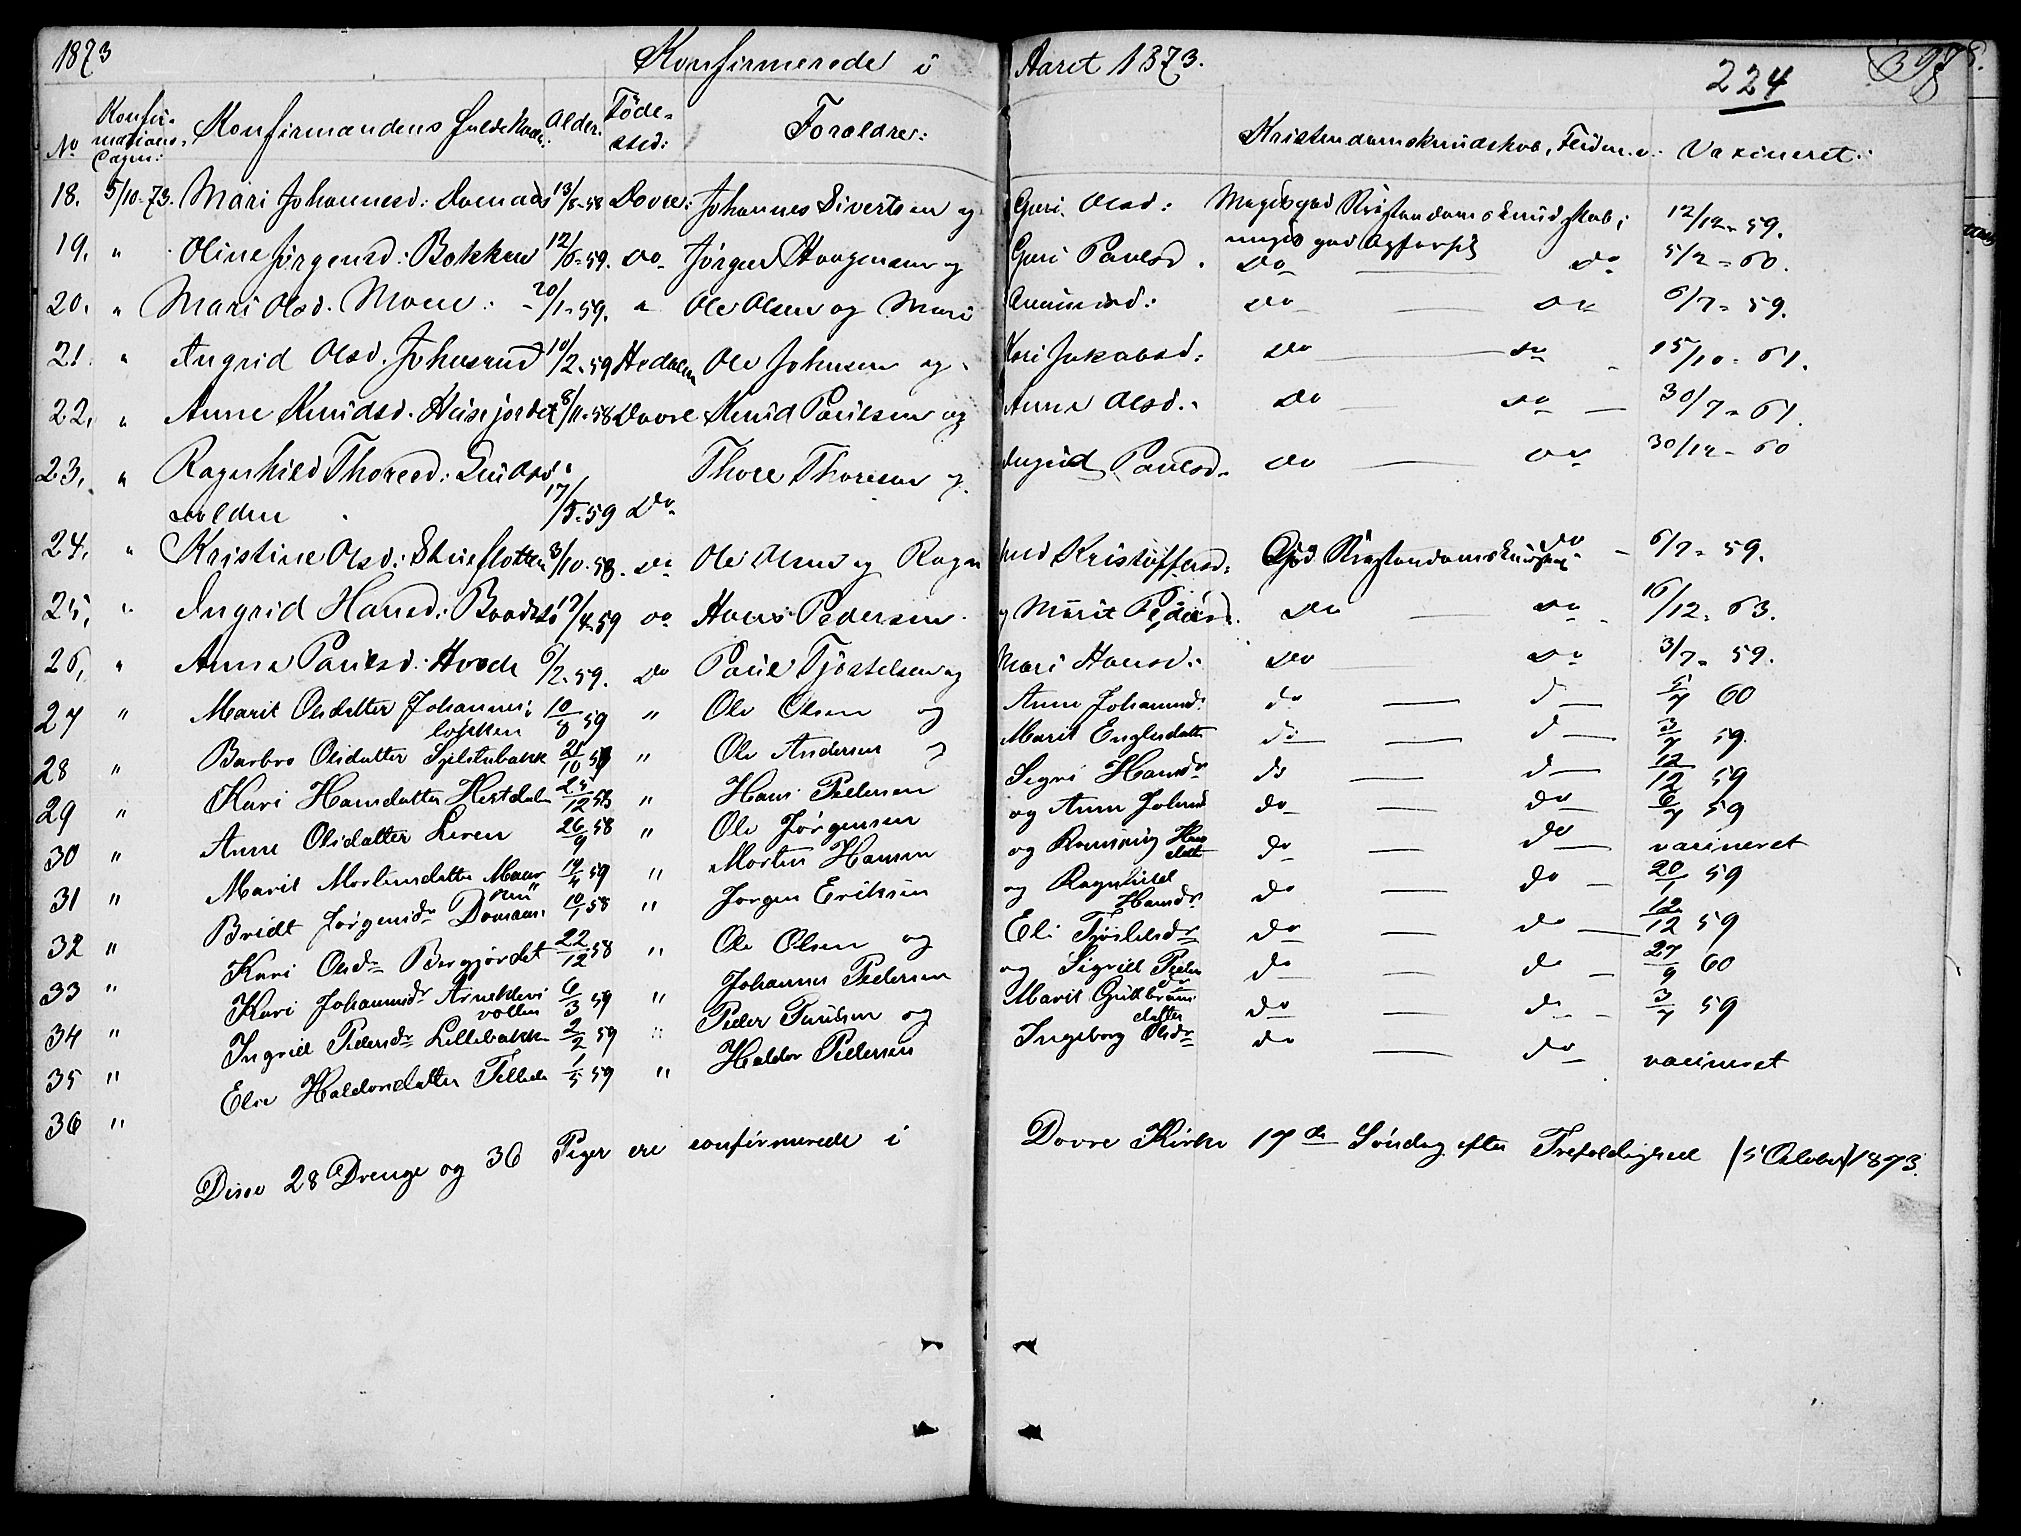 1873 Konfirmerede i Aaret 1873. 224 398
No Konfirmations Dagen: Konfirmandens fulde Navn: Alder: Fødested: Forældre: Kristendomskundskab, Flid m.v. Vaxineret:
18. 5/10-73. Mari Johannesd: Domaas 13/8-58 Dovre: Johannes Sivertsen og Guri Olsd: Meget god Kristendomskundskab; 12/12-59.
meget god Opførsel
19. " Oline Jørgensd: Bakken 12/6-59. Do Jørgen Haagensen og Guri Paulsd. Do — Do 5/2-60.
20. " Mari Olsd. Moen: 20/1-59. " Ole Olsen og Mari Amundsd: Do — Do 6/7-59.
21. " Ingrid Olsd. Johnsrud 10/2-59 Hedalen Ole Johnsen og Kari Jakobsd: Do — Do 15/10-61.
22. " Anne Knudsd. Husejordet 8/11-58 Dovre Knud Paulsen og Anne Olsd. Do — Do — 30/7-61.
23. " Ragnhild Thoresd: Gudbrandsvolden 17/5-59 Do Thore Thoresen og Ingrid Paulsd. Do — Do 30/12-60
24. " Kristine Olsd: 3/10-58. Do Ole Olsen og Ragnhild Kristoffersd: God Kristendomskundskab Do - 6/7-59.
25. " Ingrid Hansd: 17/4-59 Do Hans Pedersen og Marit Pedersd. Do — Do - 16/12-63.
26. " Anne Paulsd: Hovde 6/2-59. Do Paul Tjostelsen og Mari Hansd. Do — Do 3/7-59.
27 " Marit Olsdatter Johannesløkken 10/8 59 " Ole Olsen og Anne Johannsdr do — do — 5/7 60
28 " Barbro Olsdatter 21/10 58 " Ole Andersen og Marit Englesdatter do — do — 3/7 59
29 " Kari Hansdatter Hestdalen 25/12 58 " Hans Pedersen Segri Hansdr do — do — 12/12 59
30 " Anne Olsdatter Leren 26/9 58 " Ole Jørgensen og Anne Johnsd do — do — 6/7 59
31 " Marit Mortensdatter 14/4 59 " Morten Hansen og Rønnaug Hansdatt do — do — vacineret
32 " Bridt Jørgensdr Domaas 10/1 58 " Jørgen Eriksen og Ragnhild Hansdr do — do — 20/1 59
33 " Kari Olsdr Bergjordet 22/12 58 " Ole Olsen og Eli Tjøstelsdr do — do — 12/12 59
34 " Kari Johannsdr vollen 6/3 59 " Johannes Pedersen og Sigrid Pedersdr do — do — 27/9 60
35 " Ingrid Pedersdr Lillebakken 2/2 59 " Peder Paulsen og Marit Gulbrandsdatter do — do — 3/7 59
36 " Elie Haldorsdatter Tellede 1/5 59 " Haldor Pedersen Ingeborg Olsdr do — do vacineret
Disse 28 Drenge og 36 Piger ere confirmerede i Dovre Kirke 17de Søndag efter Trefoldighed (5 October) 1873.